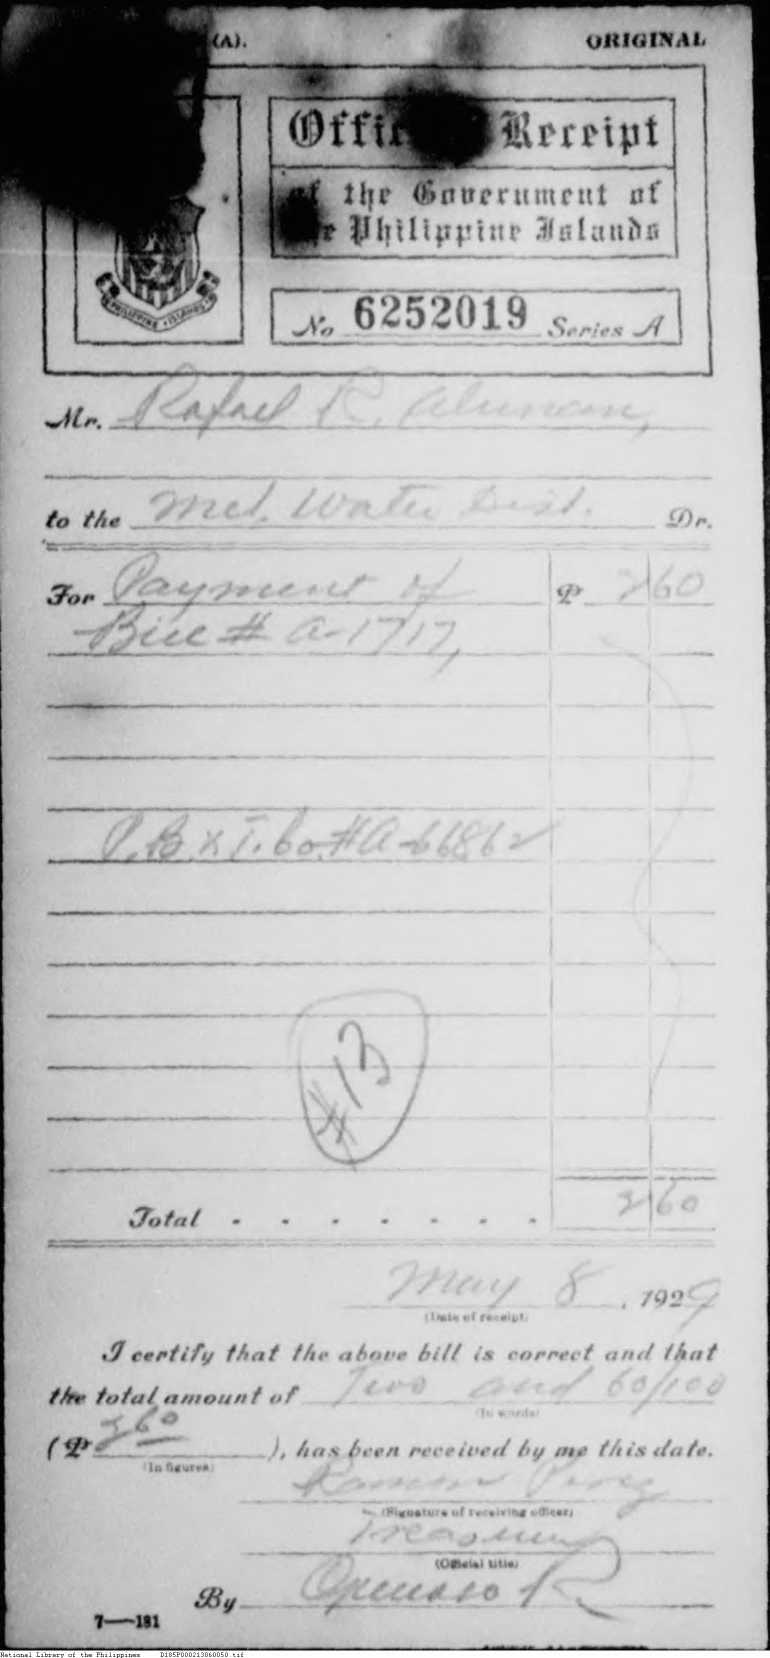 (A). ORIGINAL
Receipt
the Government of
Philippine Islands
PHILIPPINE ISLANDS
No 6252019 Series A
Mr. Rafael R. Alunan,
to the Met. Water Dist. Dr.
For Payment of ₱ 2 60
Bill # A-1717,
P.B. & T. Co. #A-66862
#13
Total . . . . . . . 2 60
May 8, 1929
(Date of receipt)
I certify that the above bill is correct and that
the total amount of Two and 60/100
(In words)
(₱ 2 60), has been received by me this date.
(In figures)
Ramon
(Signature of receiving officer)
Treasurer
(Official title)
By R.
7—181
National Library of the Philippines D185P000213060050.tif